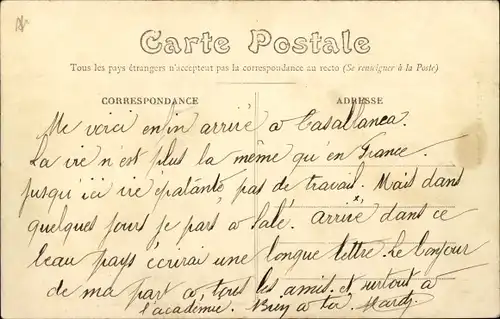 Carte Postale
Tous les pays étrangers n'acceptent pas la correspondance au recto (Se renseigner à la Poste)
CORRESPONDANCE
ADRESSE
Me voici enfin arrivé a Casablanca.
La vie n'est plus la même qu'en France.
Jusqu'ici vie épatante, pas de travail. Mais dans
quelques jours je pars a Salé. arrivé dans ce
beau pays écrirai une longue lettre. le bonjour
de ma part a tous les amis et surtout a
l'académie. Bien a toi.